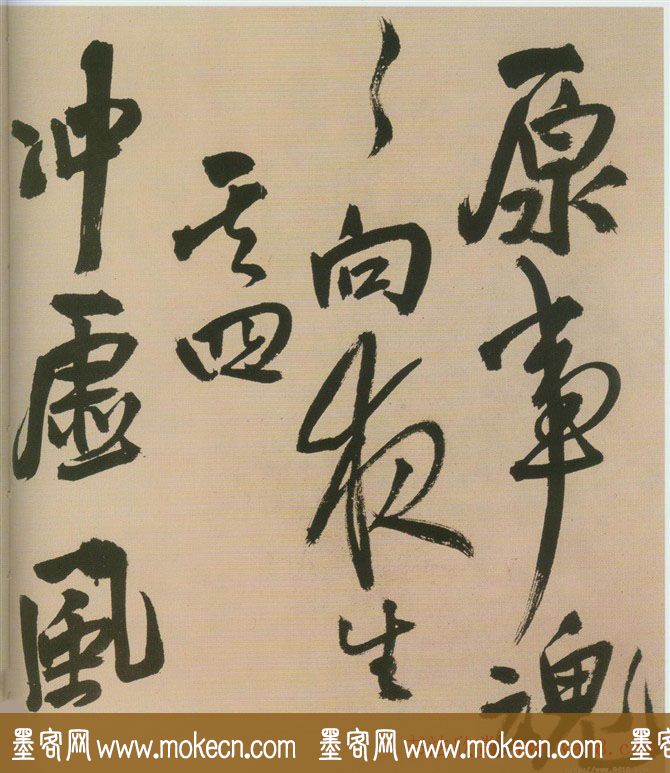 原事魂
〻向夜生
其四
冲虚風
墨客网 www.mokecn.com 墨客网 www.mokecn.com 墨客网